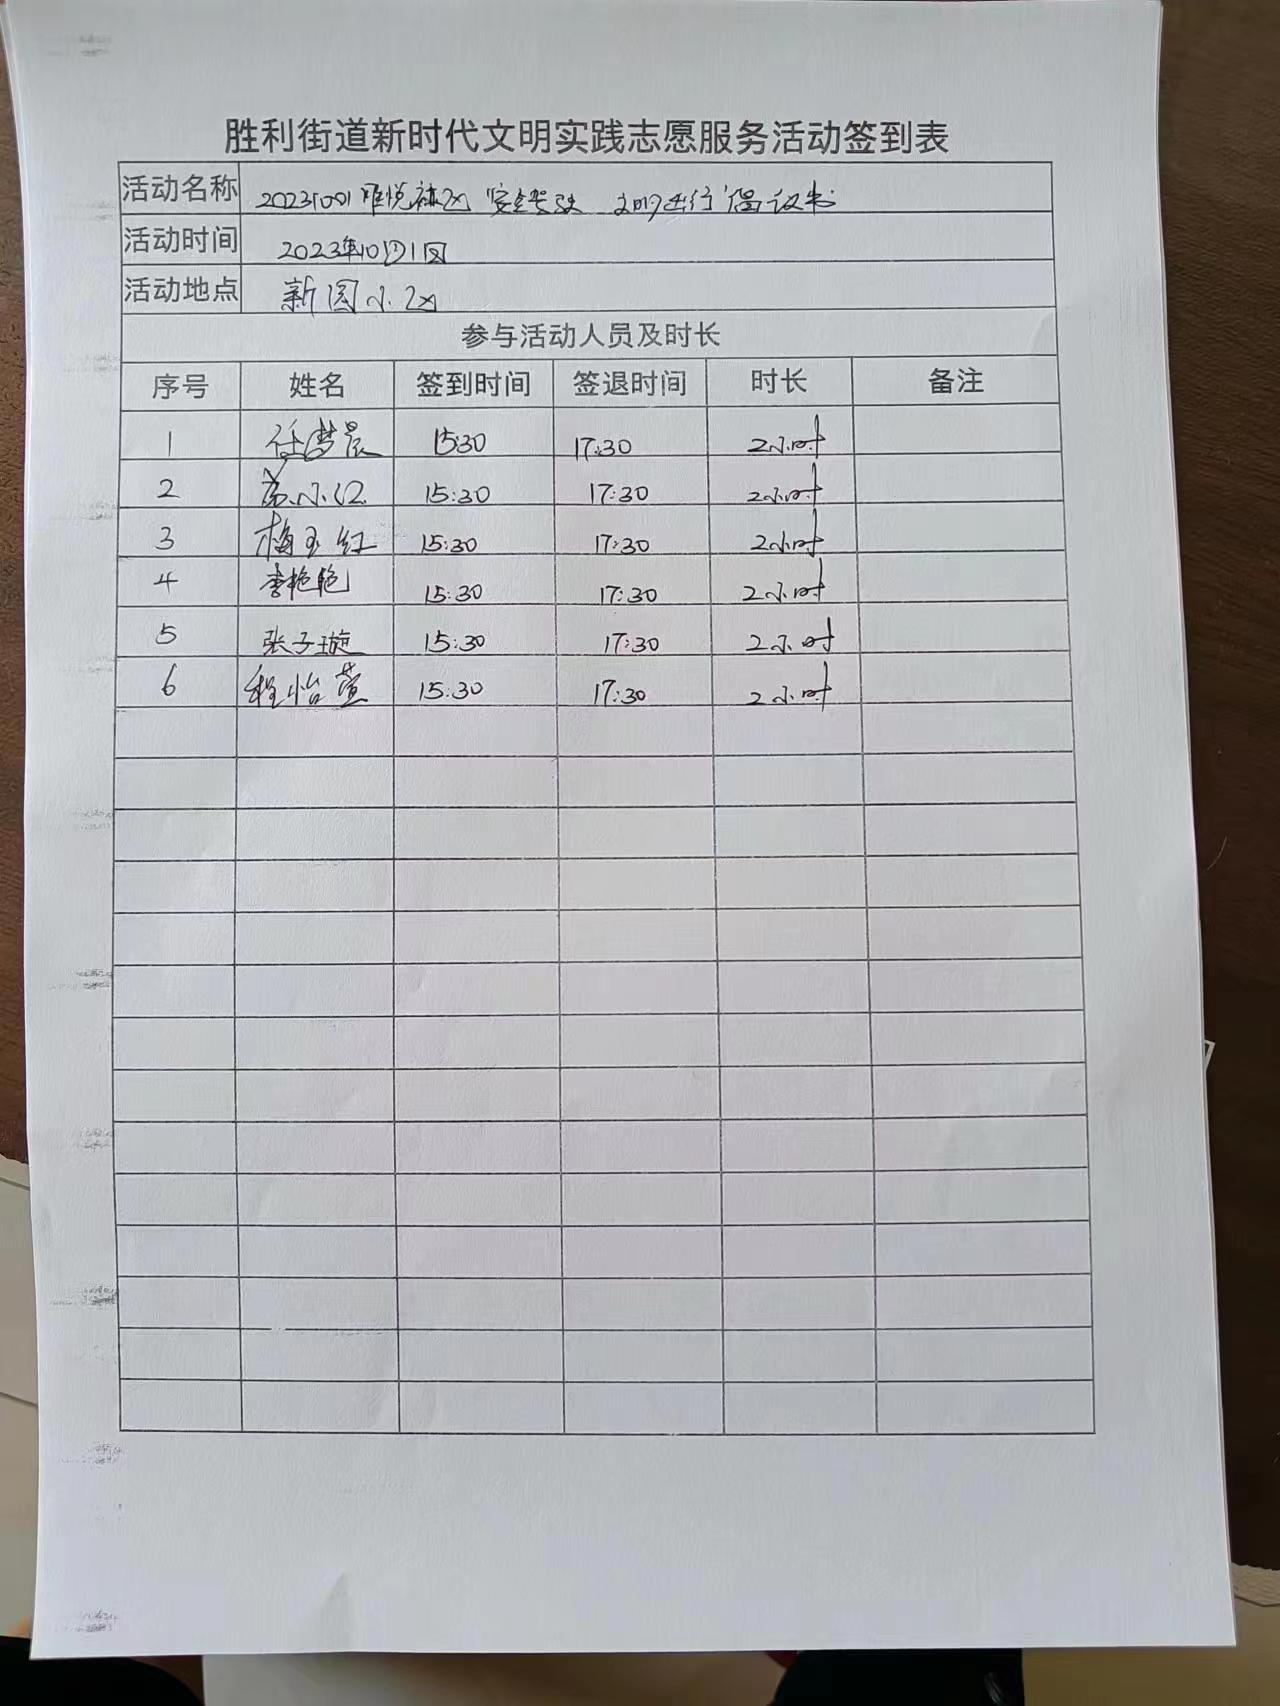 胜利街道新时代文明实践志愿服务活动签到表
活动名称 20231001唯悦社区 安全驾驶 文明出行 倡议书
活动时间 2023年10月1日
活动地点 新园小区
参与活动人员及时长
序号 姓名 签到时间 签退时间 时长 备注
1 任梦晨 15:30 17:30 2小时
2 小红 15:30 17:30 2小时
3 梅玉红 15:30 17:30 2小时
4 李艳艳 15:30 17:30 2小时
5 张子璇 15:30 17:30 2小时
6 程怡萱 15:30 17:30 2小时